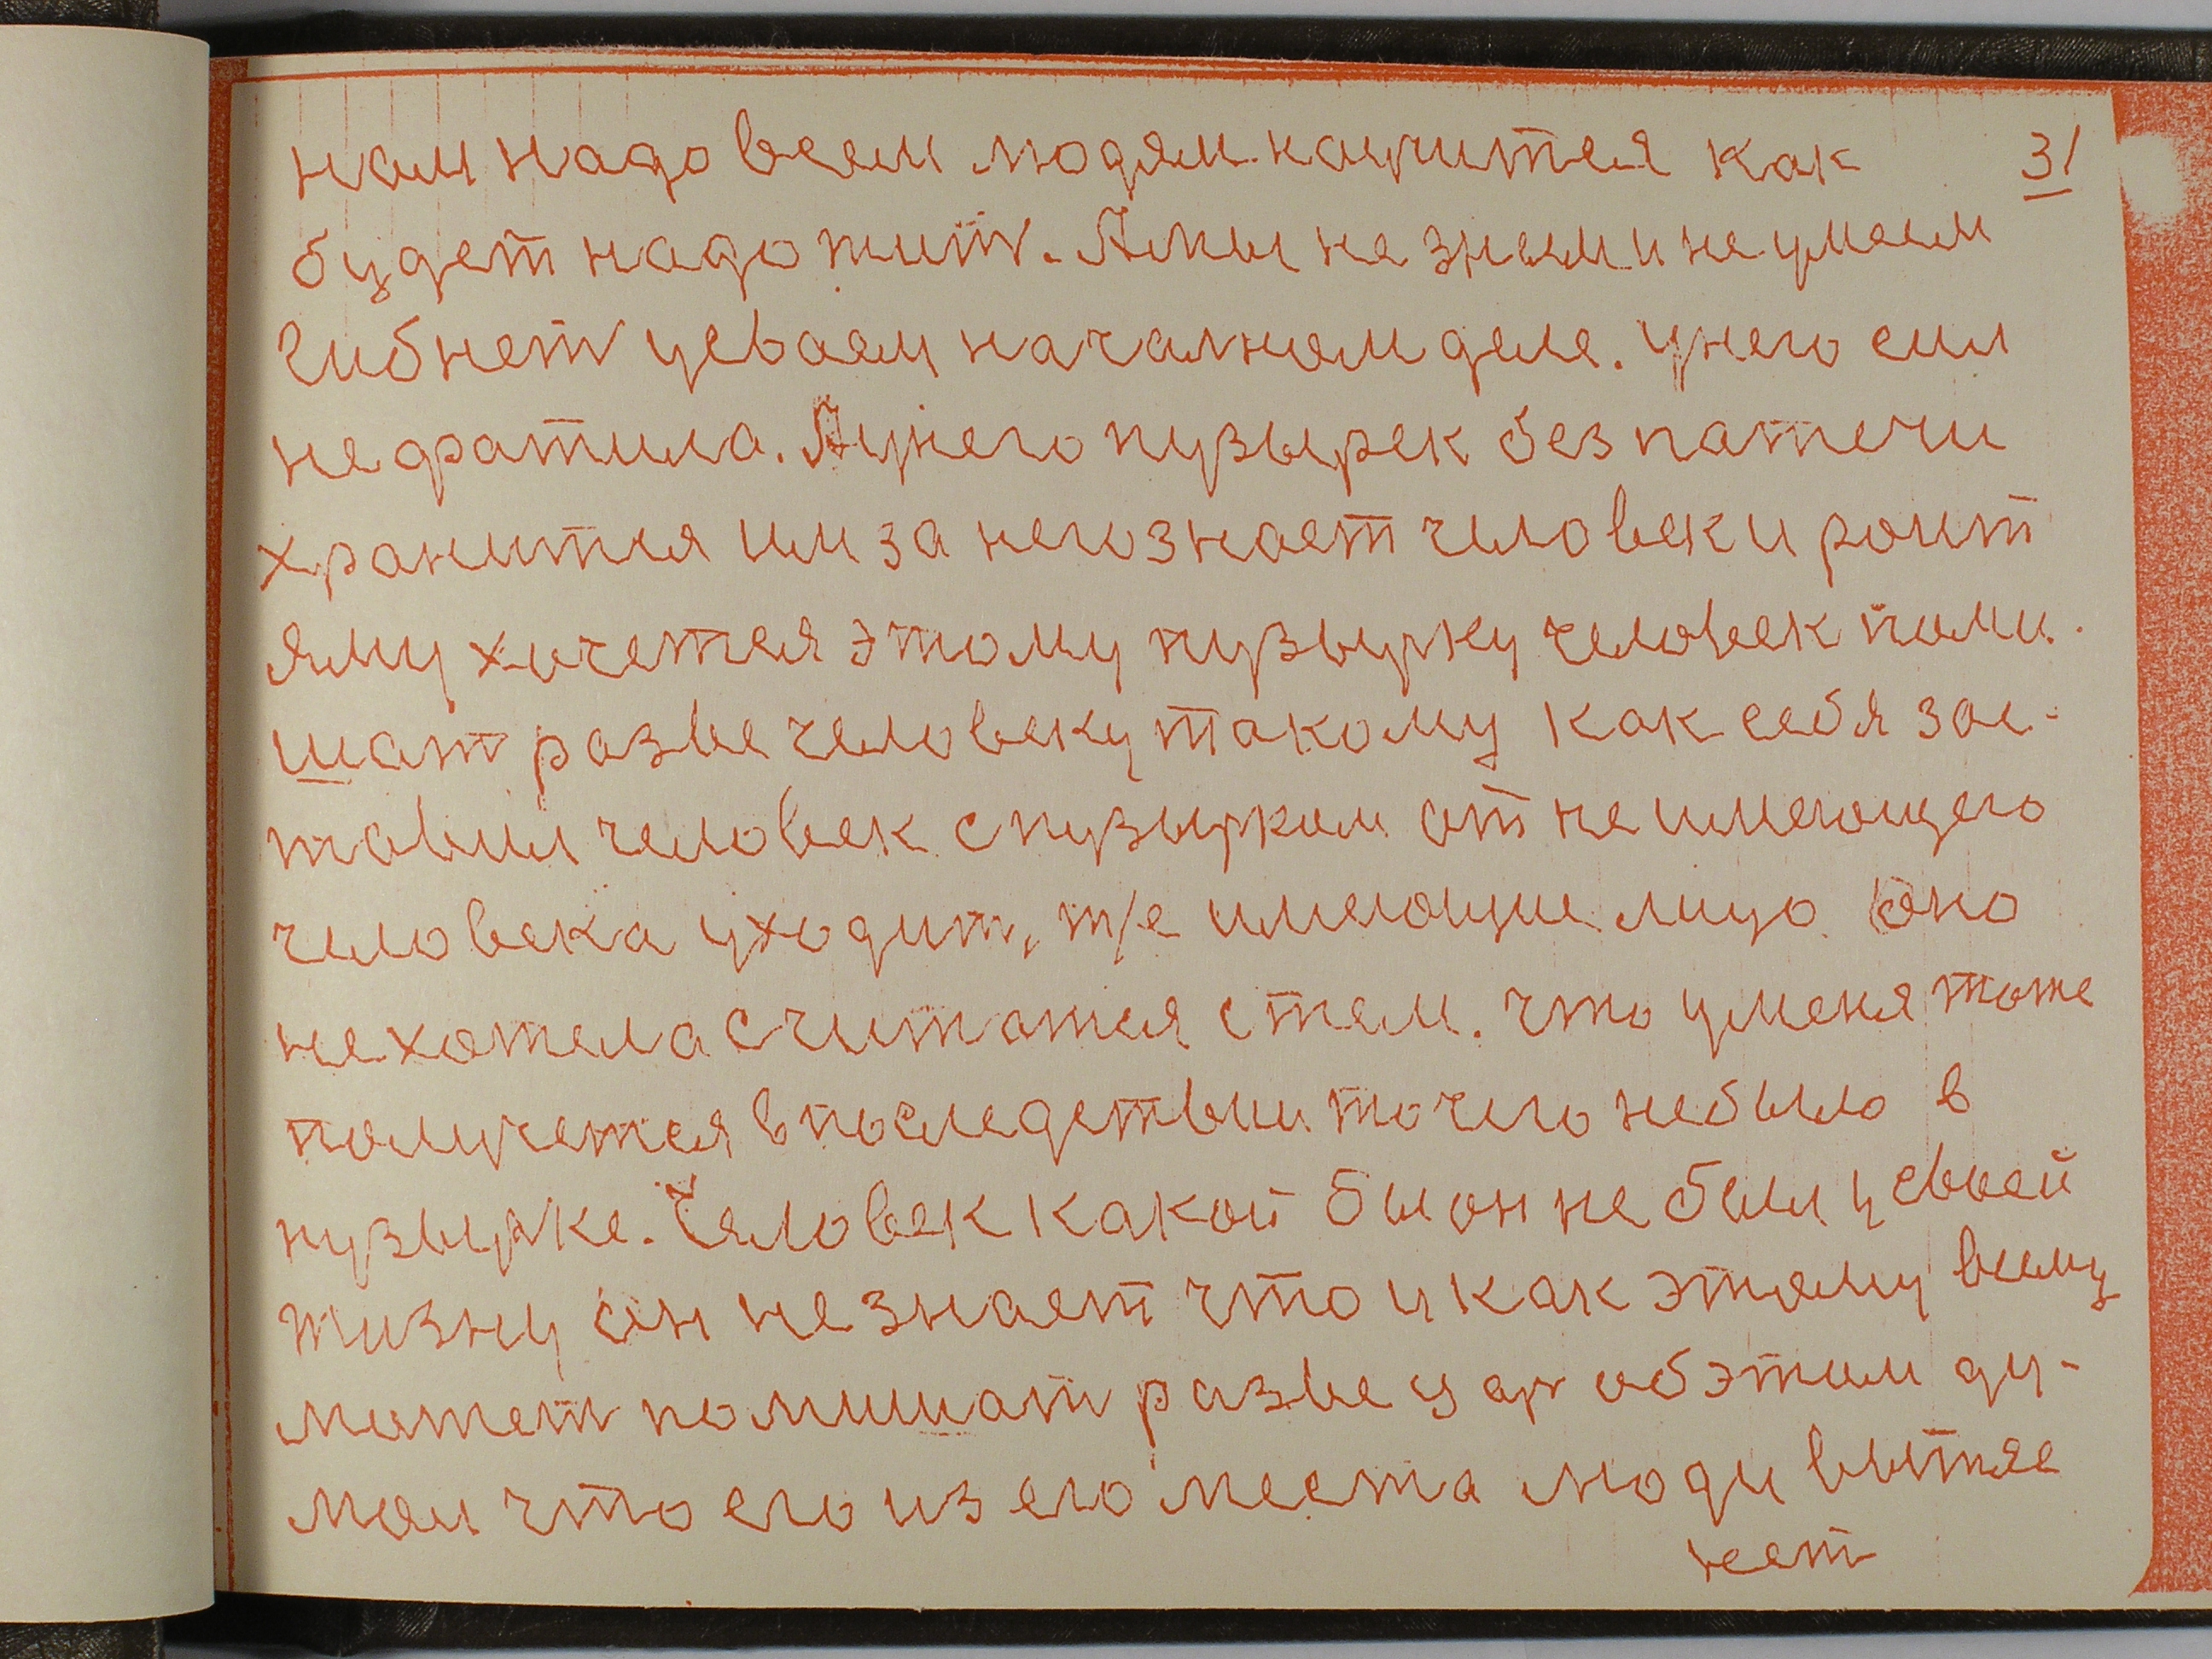 нам надо всем людям научится как 31
будет надо жить. А мы не знаем и не умеем
гибнеть у своем началном деле. у него сил
не фатила. А у него пузырек без патечи
хранится им за него знает человек и роит
яму хочется этому пузырку человек поми-
шать разве человеку такому как себя зас-
тавил человек с пузырком от не имеющего
человека уходит, т/е имеющие лицо оно
не хотела считатся с тем. что у меня тоже
получется в последствии то чего небыло в
пузырке. Человек какой бы он не был у своей
жизну он не знает что и как этому всему
может помишать разве царь об этом ду-
мал что его из его места люди вытяс
неет